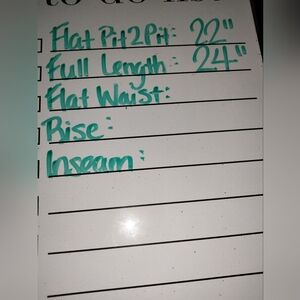 to do list
Flat Pit2Pit: 22"
Full Length: 24"
Flat Waist:
Rise:
Inseam: